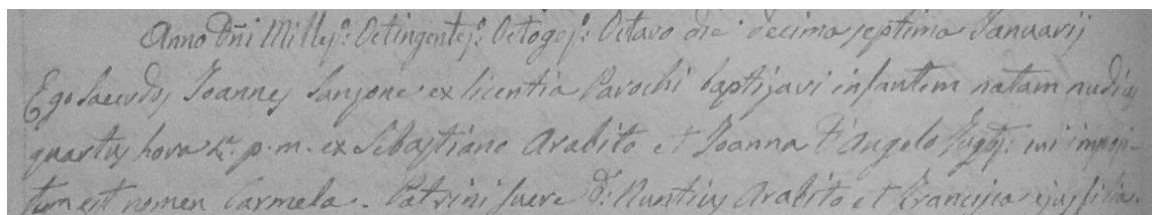 Anno Dñi Milles: Octingentes: Octoges: Octavo die decima septima Januarij
Ego Sacerdos Joannes Sanzone ex licentia Parochi baptizavi infantem natam nudius
quartus hora p.m. ex Sebastiano Arabito et Joanna D'Angelo Jugs: cui imposi-
tum est nomen Carmela. Patrini fuere D: Nuntius Arabito et Francisca ejus filia.